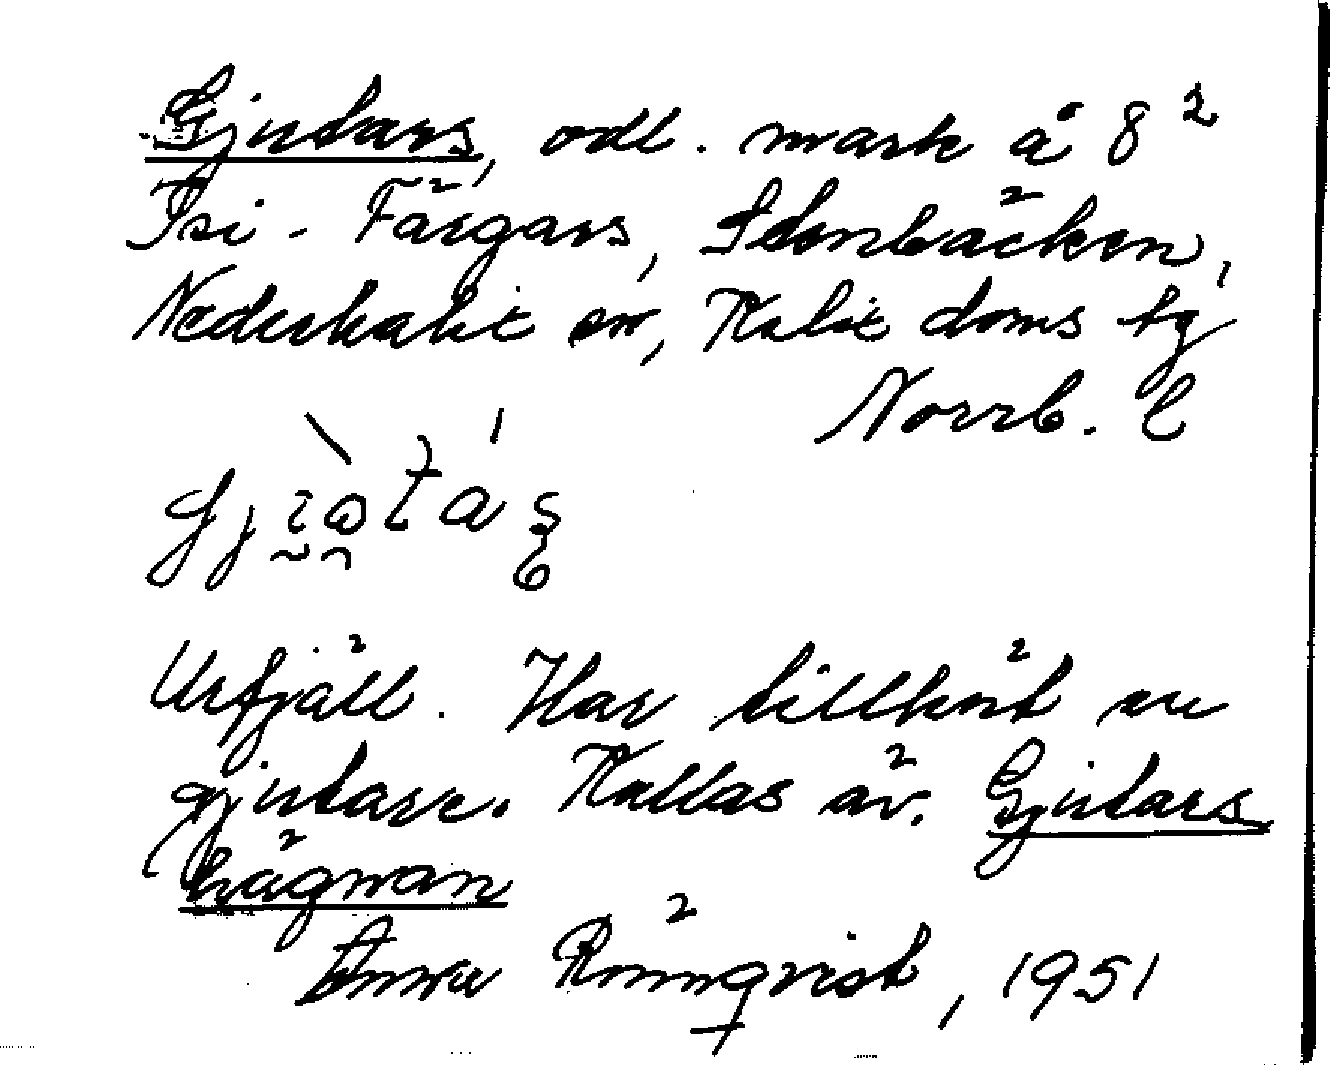 Gjutars, odl. mark å 8²
Isi-Färgars, Storbäcken,
Nederkalix sn, Kalix doms tg
Norrb. l
Urfjäll. Har tillhört en
gjutare. Kallas äv. Gjutars
hägnan
Rönnqvist, 1951